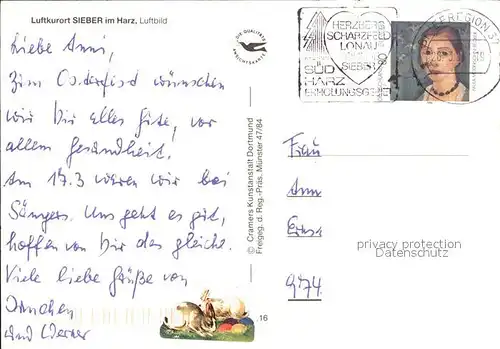 Luftkurort SIEBER im Harz, Luftbild
DIE QUALITÄTS
ANSICHTSKARTE
HERZBERG
SCHARZFELD
LONAU
SIEBER
SÜD
HARZ
ERHOLUNGSGEBIET
BRIEFREGION 37
Liebe Anni,
zum Osterfest wünschen
wir Dir alles Gute, vor
allem Gesundheit.
Am 17.3 waren wir bei
Sängers. Uns geht es gut,
hoffen von Dir das gleiche.
Viele liebe Grüße von
Ännchen
und Werner
© Cramers Kunstanstalt Dortmund
Freigeg. d. Reg.-Präs. Münster 47/84
16
Frau
Ann
Erns
privacy protection
Datenschutz
9474